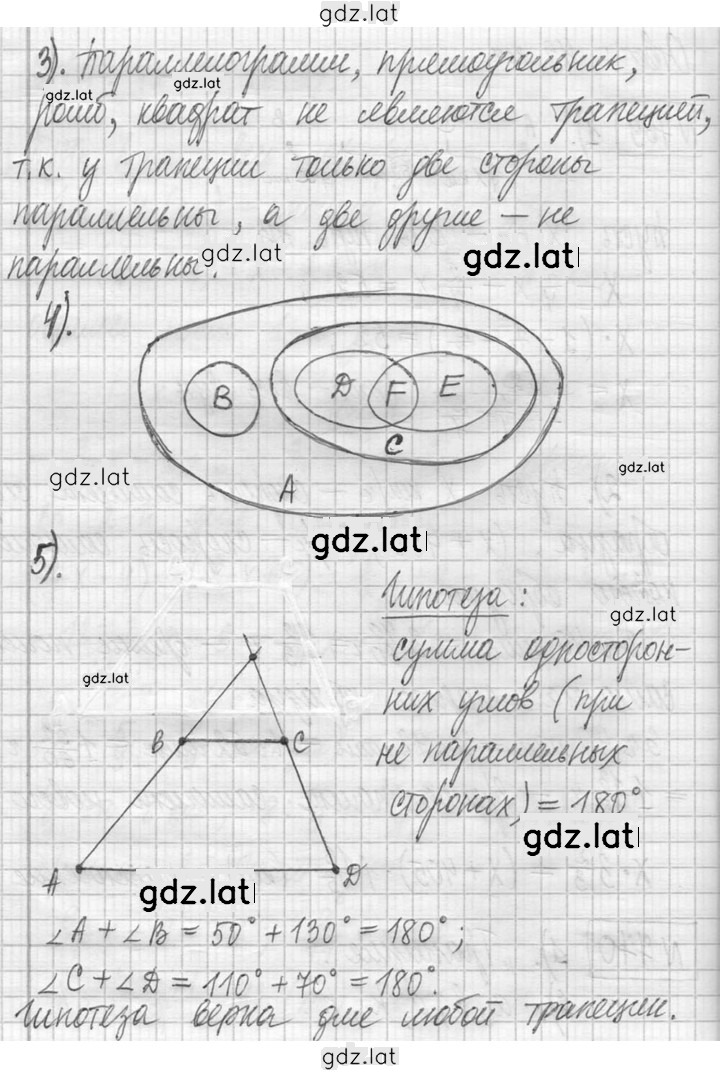 gdz.lat
3). Параллелограмм, прямоугольник,
gdz.lat
gdz.lat
ромб, квадрат не являются трапецией,
т.к. у трапеции только две стороны
параллельны, а две другие – не
gdz.lat
gdz.lat
параллельны.
4).
B
D
F
E
C
A
gdz.lat
gdz.lat
gdz.lat
5).
Гипотеза:
gdz.lat
сумма односторон-
gdz.lat
них углов (при
B
C
не параллельных
сторонах) = 180°
gdz.lat
A
D
gdz.lat
∠A + ∠B = 50° + 130° = 180°;
∠C + ∠D = 110° + 70° = 180°.
Гипотеза верна для любой трапеции.
gdz.lat